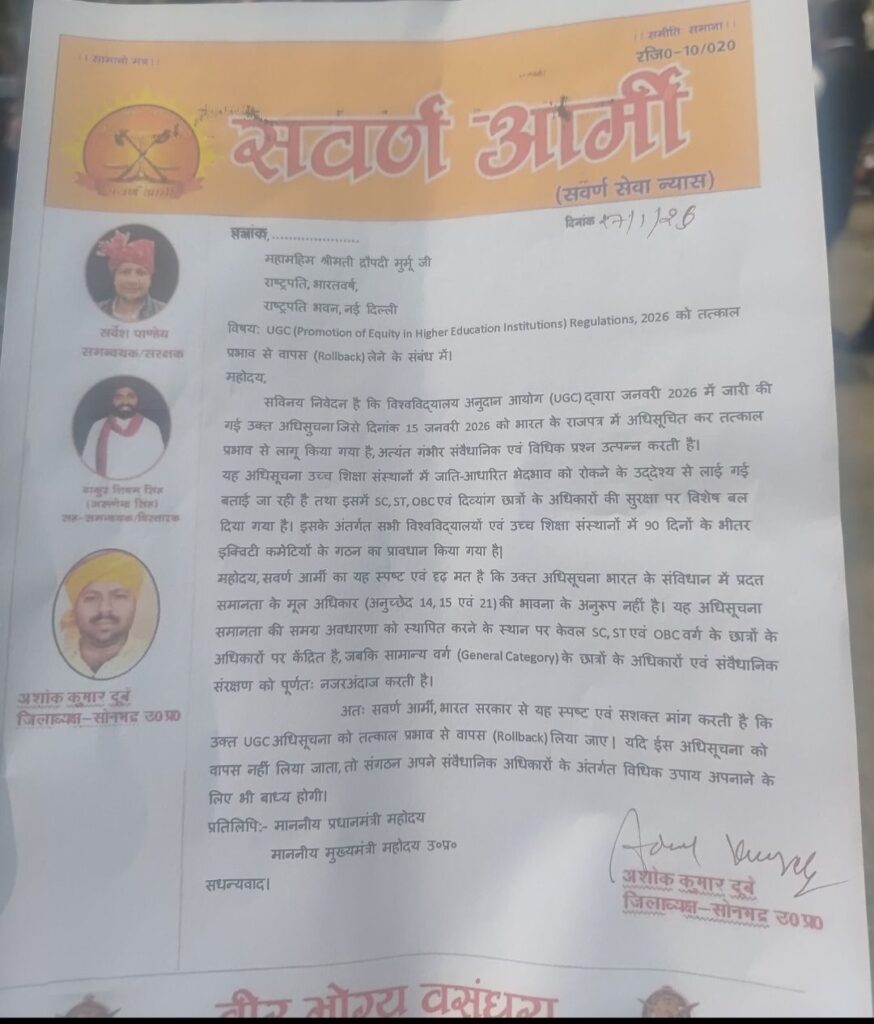 ।। सामानो मन्त्र।।
।। समीति समाना।।
रजि0-10/020
सवर्ण आर्मी
(सवर्ण सेवा न्यास)
दिनांक 27/1/26
पत्रांक,....................
महामहिम श्रीमती द्रौपदी मुर्मू जी
राष्ट्रपति, भारतवर्ष,
राष्ट्रपति भवन, नई दिल्ली
विषय: UGC (Promotion of Equity in Higher Education Institutions) Regulations, 2026 को तत्काल
प्रभाव से वापस (Rollback) लेने के संबंध में।
महोदय,
सविनय निवेदन है कि विश्वविद्यालय अनुदान आयोग (UGC) द्वारा जनवरी 2026 में जारी की
गई उक्त अधिसुचना जिसे दिनांक 15 जनवरी 2026 को भारत के राजपत्र में अधिसूचित कर तत्काल
प्रभाव से लागू किया गया है, अत्यंत गंभीर संवैधानिक एवं विधिक प्रश्न उत्पन्न करती है।
यह अधिसूचना उच्च शिक्षा संस्थानों में जाति-आधारित भेदभाव को रोकने के उद्देश्य से लाई गई
बताई जा रही है तथा इसमें SC, ST, OBC एवं दिव्यांग छात्रों के अधिकारों की सुरक्षा पर विशेष बल
दिया गया है। इसके अंतर्गत सभी विश्वविद्यालयों एवं उच्च शिक्षा संस्थानों में 90 दिनों के भीतर
इक्विटी कमेटियों के गठन का प्रावधान किया गया है|
महोदय, सवर्ण आर्मी का यह स्पष्ट एवं दृढ़ मत है कि उक्त अधिसूचना भारत के संविधान में प्रदत
समानता के मूल अधिकार (अनुच्छेद 14, 15 एवं 21) की भावना के अनुरूप नहीं है। यह अधिसूचना
समानता की समग्र अवधारणा को स्थापित करने के स्थान पर केवल SC, ST एवं OBC वर्ग के छात्रों के
अधिकारों पर केंद्रित है, जबकि सामान्य वर्ग (General Category) के छात्रों के अधिकारों एवं संवैधानिक
संरक्षण को पूर्णतः नजरअंदाज करती है।
अतः सवर्ण आर्मी, भारत सरकार से यह स्पष्ट एवं सशक्त मांग करती है कि
उक्त UGC अधिसूचना को तत्काल प्रभाव से वापस (Rollback) लिया जाए। यदि ईस अधिसूचना को
वापस नहीं लिया जाता, तो संगठन अपने संवैधानिक अधिकारों के अंतर्गत विधिक उपाय अपनाने के
लिए भी बाध्य होगी।
प्रतिलिपि:- माननीय प्रधानमंत्री महोदय
माननीय मुख्यमंत्री महोदय उ०प्र०
सधन्यवाद।
सर्वेश पाण्डेय
समन्वयक/संरक्षक
ठाकुर शिवम सिंह
सह-समन्वयक/विस्तारक
अशोक कुमार दूबे
जिलाध्यक्ष–सोनभद्र उ0प्र0
अशोक कुमार दूबे
जिलाध्यक्ष–सोनभद्र उ0प्र0
वीर भोग्य वसुंधरा